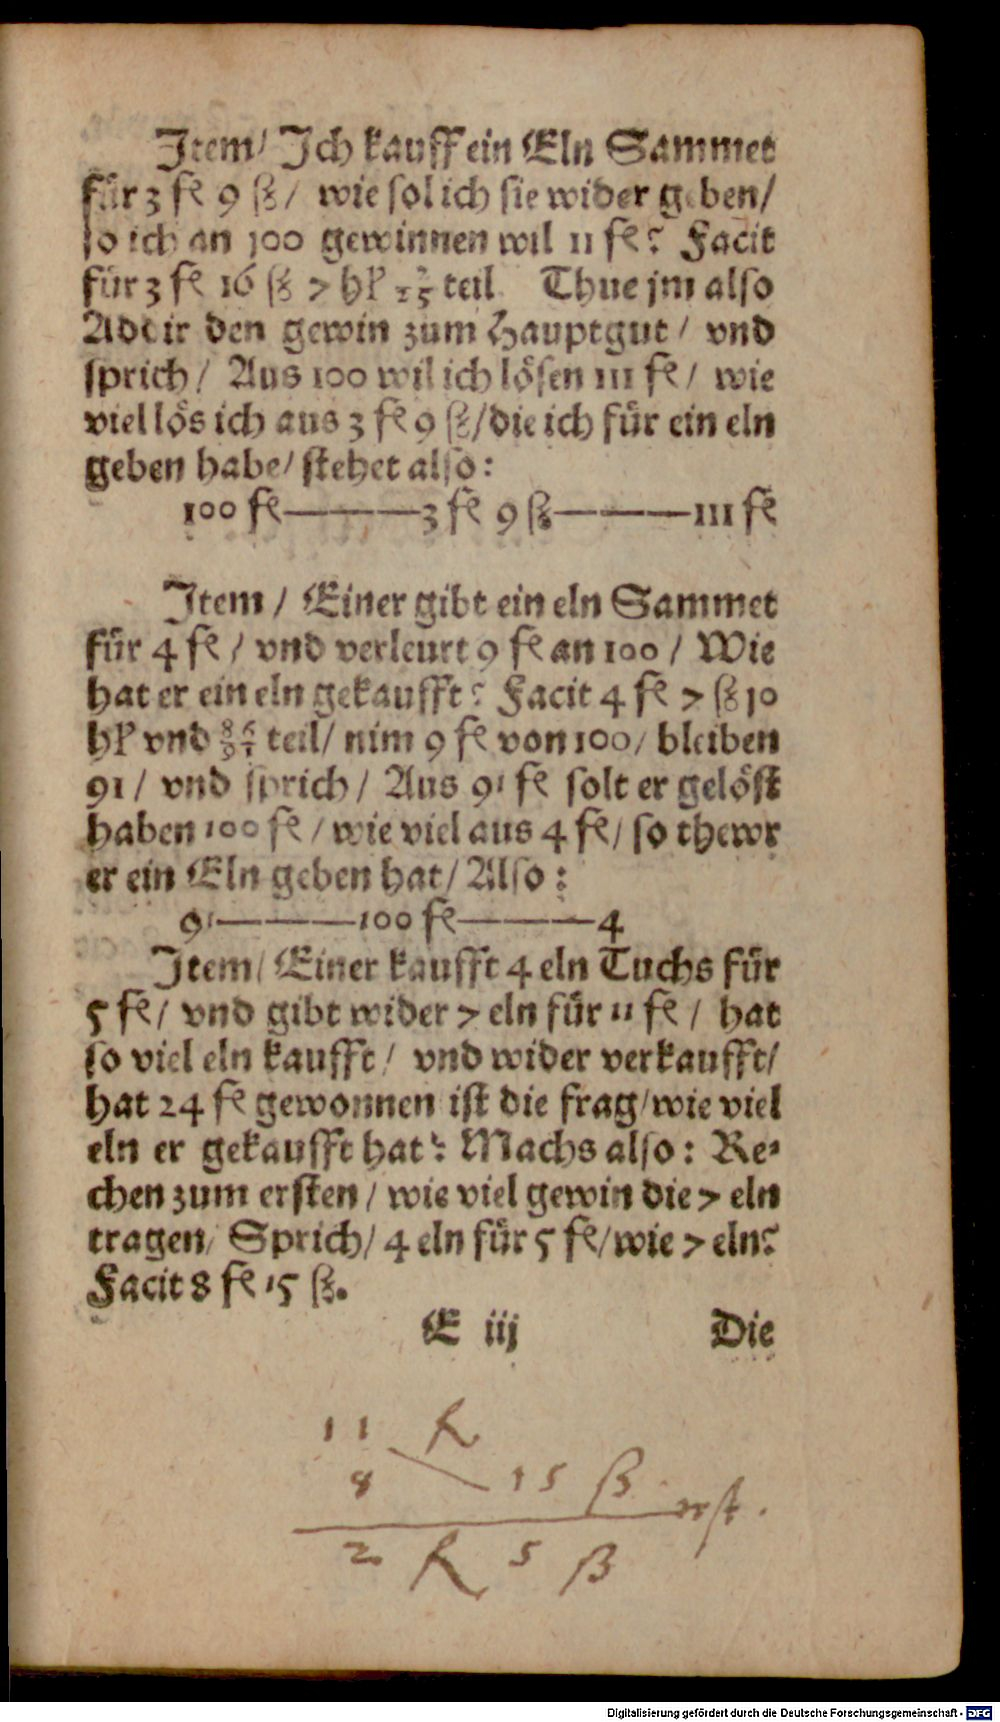 Item/ Ich kauff ein Eln Sammet
für 3 fl 9 ß/ wie sol ich sie wider geben/
so ich an 100 gewinnen wil 11 fl? Facit
für 3 fl 16 ß 7 hl 2/25 teil Thue jm also
Addir den gewin zum Hauptgut/ vnd
sprich/ Aus 100 wil ich lösen 111 fl/ wie
viel lös ich aus 3 fl 9 ß/ die ich für ein eln
geben habe/ stehet also:
100 fl———3 fl 9 ß———111 fl
Item/ Einer gibt ein eln Sammet
für 4 fl/ vnd verleurt 9 fl an 100/ Wie
hat er ein eln gekaufft? Facit 4 fl 7 ß 10
hl vnd 86/91 teil/ nim 9 fl von 100/ bleiben
91/ vnd sprich/ Aus 91 fl solt er gelöst
haben 100 fl/ wie viel aus 4 fl/ so thewr
er ein Eln geben hat/ Also:
91———100 fl———4
Item/ Einer kaufft 4 eln Tuchs für
5 fl/ vnd gibt wider 7 eln für 11 fl/ hat
so viel eln kaufft/ vnd wider verkaufft/
hat 24 fl gewonnen ist die frag/ wie viel
eln er gekaufft hat? Machs also: Re-
chen zum ersten/ wie viel gewin die 7 eln
tragen/ Sprich/ 4 eln für 5 fl/ wie 7 eln?
Facit 8 fl 15 ß.
E iij Die
11 fl
8 15 ß
rst.
2 fl 5 ß
Digitalisierung gefördert durch die Deutsche Forschungsgemeinschaft - DFG